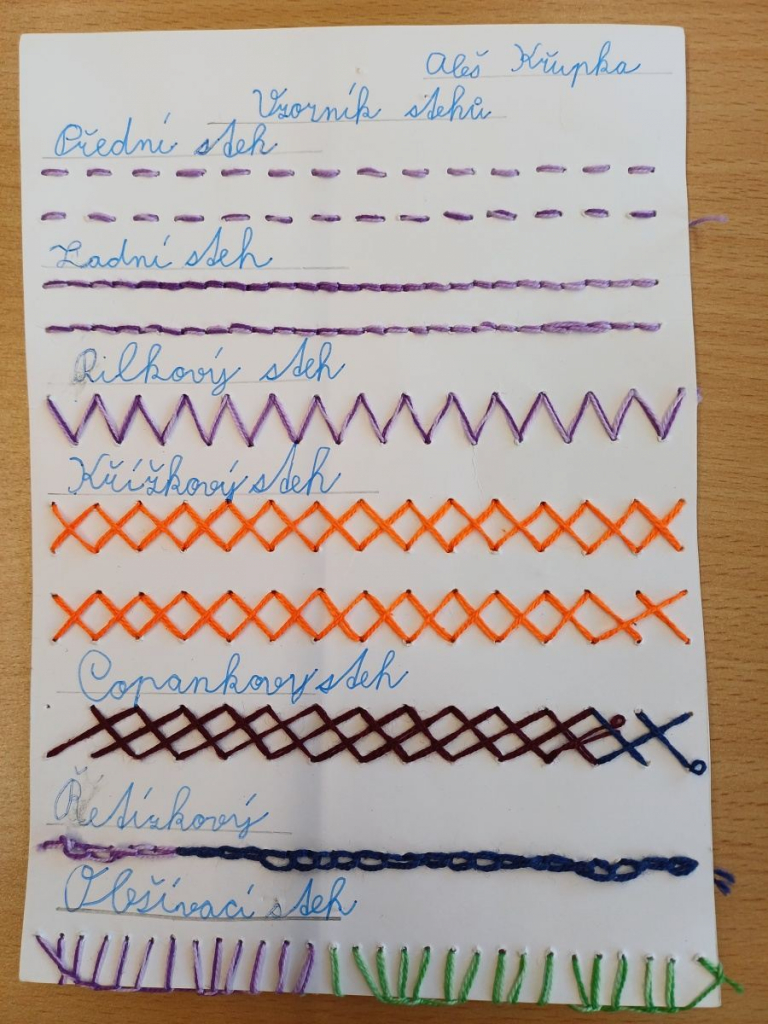 Aleš Křupka
Vzorník stehů
Přední steh
Zadní steh
Pilkový steh
Křížkový steh
Copankovy steh
Řetízkový
Obšívací steh